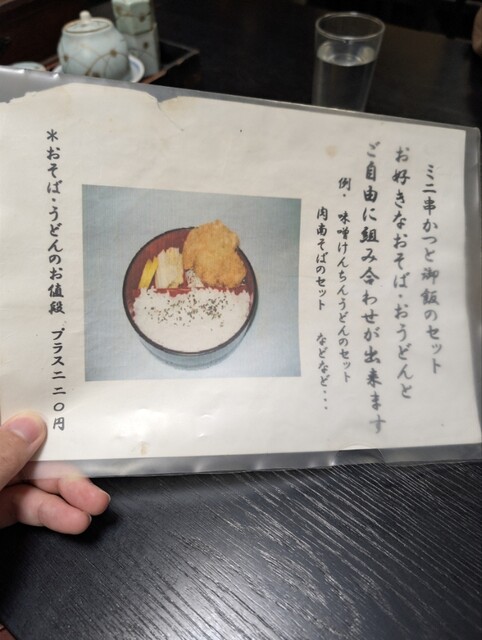 ミニ串かつと御飯のセット
お好きなおそば・おうどんと
ご自由に組み合わせが出来ます
例・味噌けんちんうどんのセット
肉南そばのセット　などなど・・・
＊おそば・うどんのお値段　プラス二二〇円